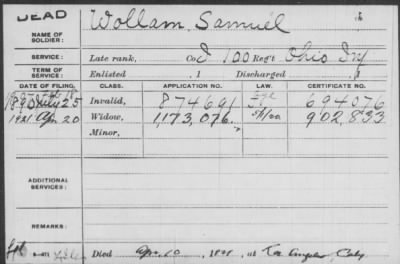 DEAD
NAME OF SOLDIER: Wollam, Samuel
SERVICE: Late rank, Co. I 100 Reg't Ohio Inf
TERM OF SERVICE: Enlisted , 1 Discharged , 1
DATE OF FILING. CLASS. APPLICATION NO. LAW. CERTIFICATE NO.
1890 July 25 Invalid, 874691 694076
1921 Apr 20 Widow, 1,173,076. 902,833
Minor,
ADDITIONAL SERVICES:
REMARKS:
Died Apr. 10, 1921, at Los Angeles, Caly